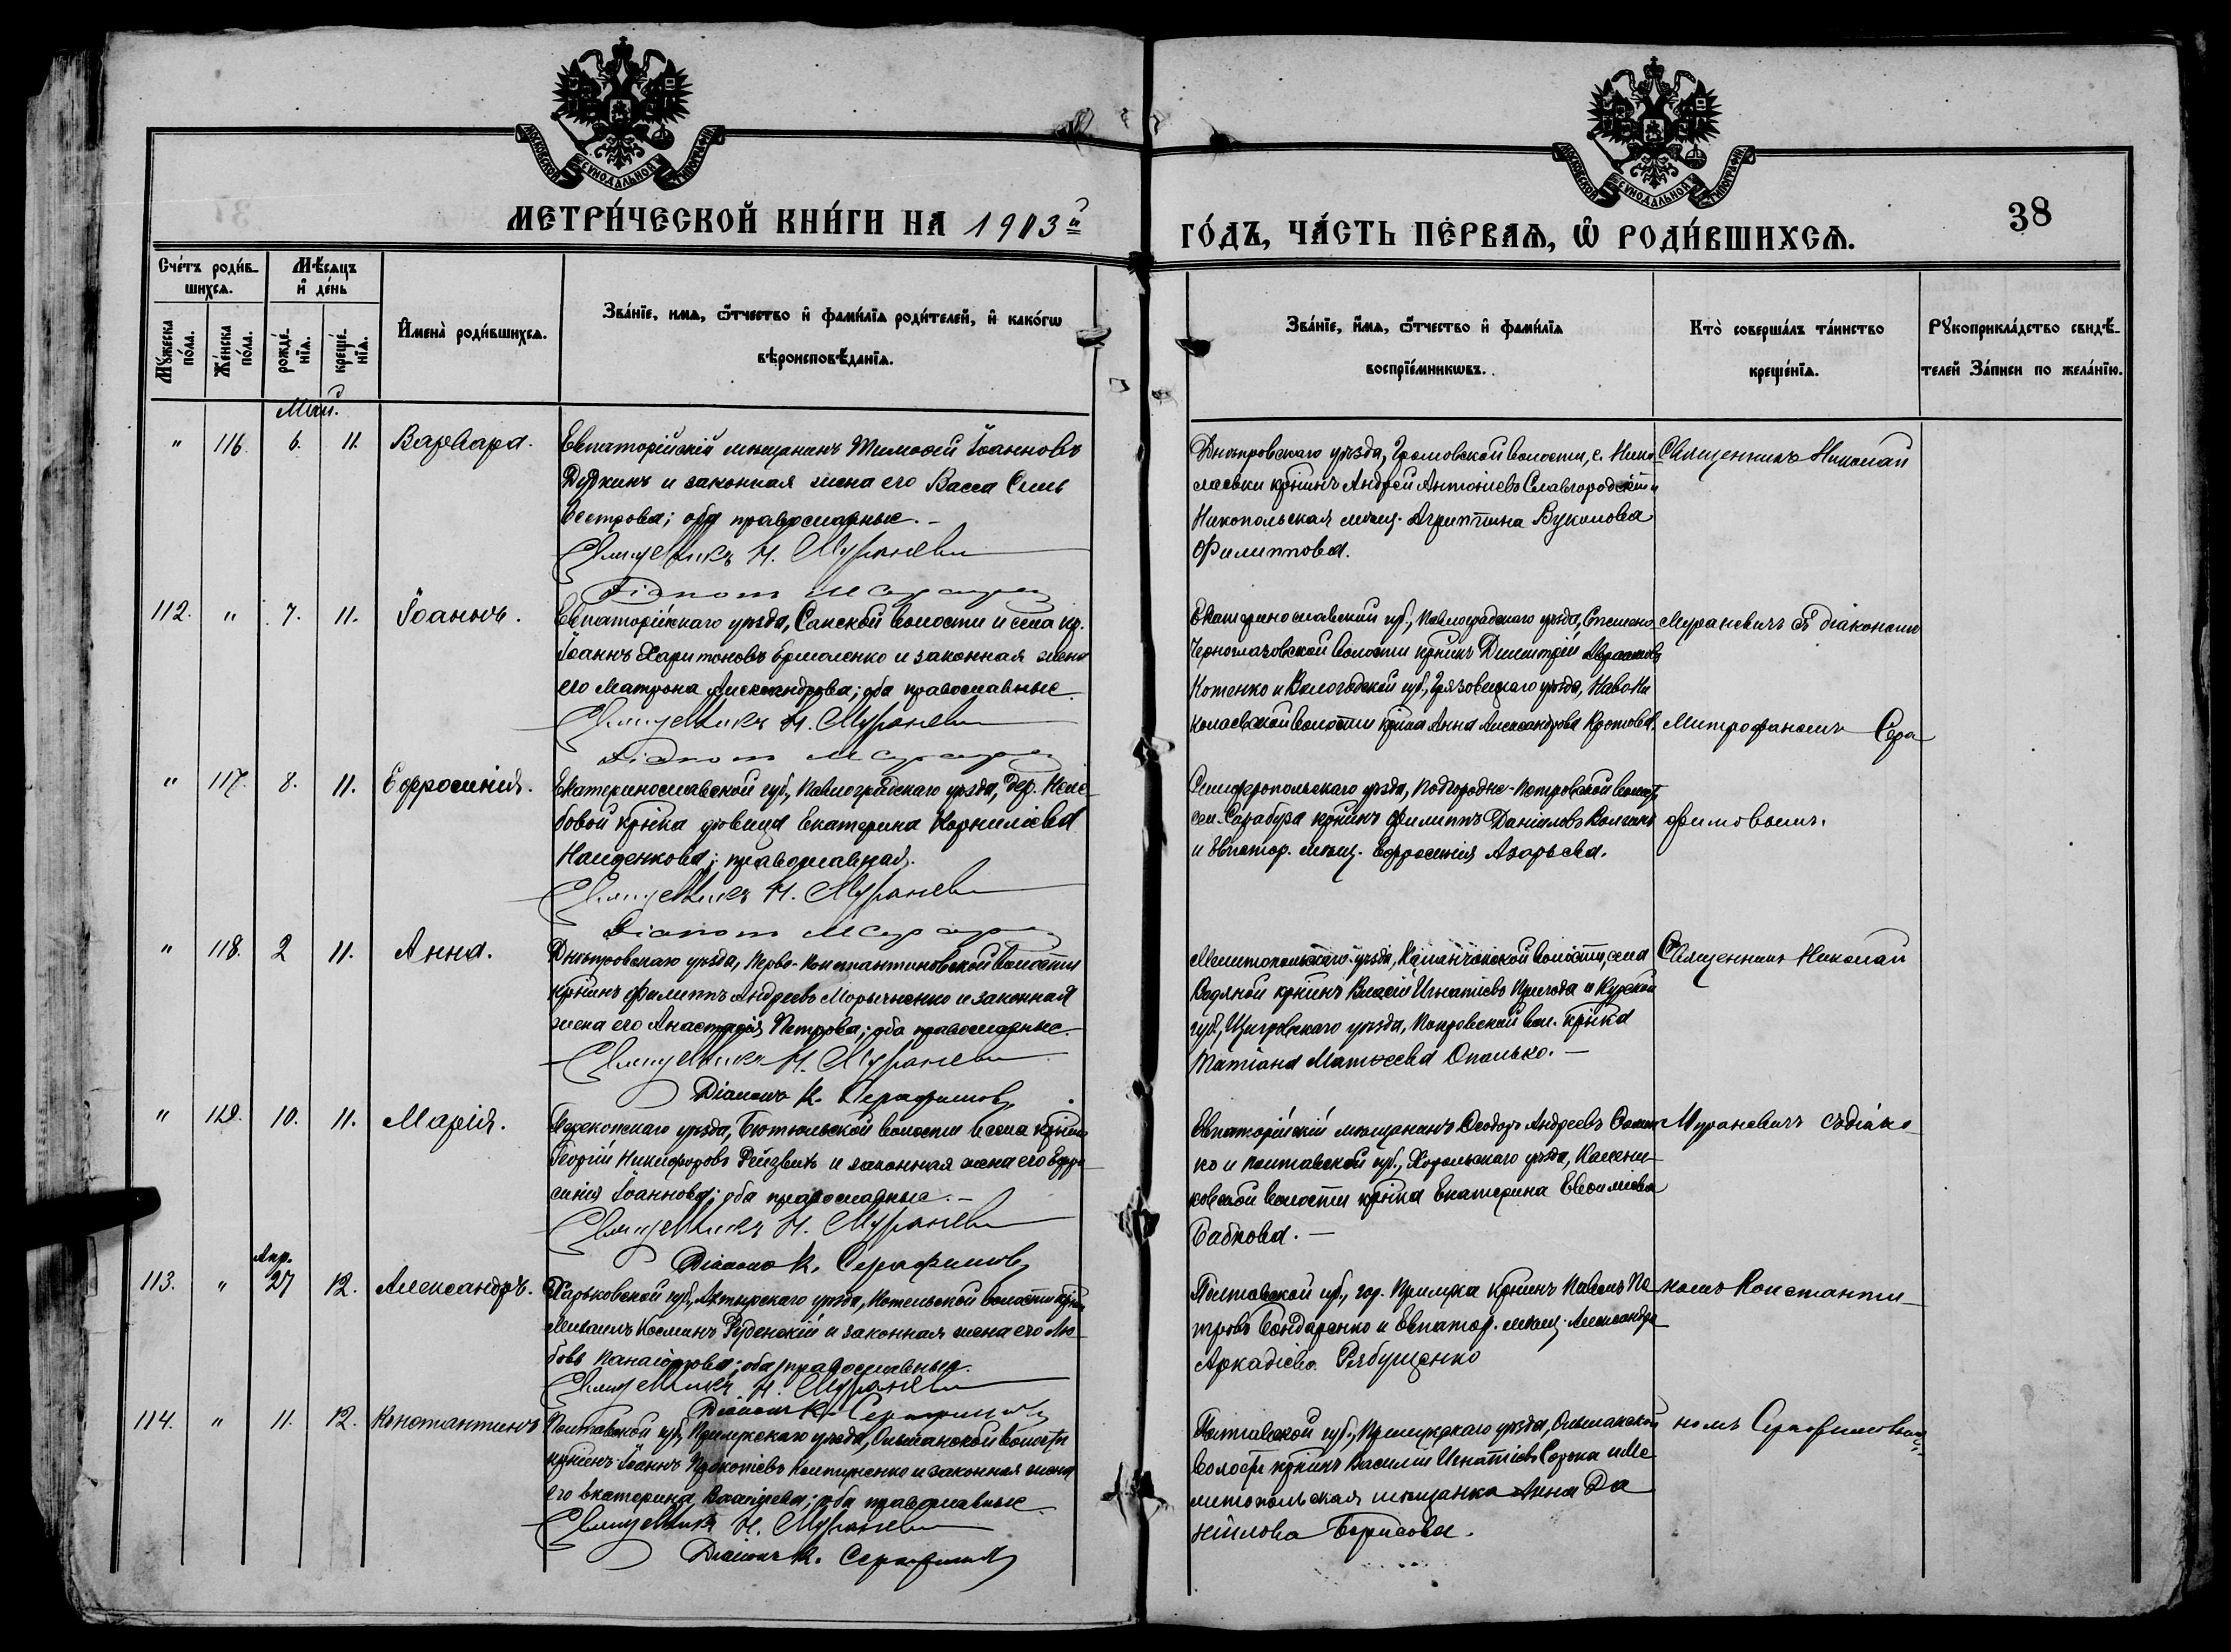 МОСКОВСКОЙ СѴНОДАЛЬНОЙ ТИПОГРАФІИ
МОСКОВСКОЙ СѴНОДАЛЬНОЙ ТИПОГРАФІИ
МЕТРИ́ЧЕСКОЙ КНИ́ГИ НА 1903й
ГО́ДЪ, ЧА́СТЬ ПЕ́РВАѦ, Ѡ РОДИ́ВШИХСѦ.
38
Сче́тъ роди́в-
шихсѧ.
Мѣ́сѧцъ
и де́нь
Мꙋ́жеска
по́ла.
Же́нска
по́ла.
рожде́-
нїѧ.
креще́-
нїѧ.
И҆мена̀ роди́вшихсѧ.
Зва́нїе, имѧ, ѻ҆́тчество и҆ фами́лїѧ роди́телей, и҆ како́гѡ
вѣроисповѣ́данїѧ.
Зва́нїе, и҆́мѧ, ѻ҆́тчество и҆ фами́лїѧ
воспрїе́мникѡвъ.
Кто̀ соверша́лъ та́инство
креще́нїѧ.
Рꙋкоприкла́дство свидѣ́-
телей За́писи по жела́нїю.
Май.
" 116. 6. 11. Варвара.
Евпаторійскій мѣщанинъ Тимоѳей Іоанновъ
Дудкинъ и законная жена его Васса Силь
вестрова; оба православные.
Священникъ Н. Мураневичъ
Діаконъ М
Днѣпровскаго уѣзда, Громовской волости, с.
крнинъ Андрей Антоніевъ Славгородскій и
Никопольская мѣщ. Агриппина Вуколова
Филиппова.
Священникъ Николай
112. " 7. 11. Іоаннъ.
Евпаторійскаго уѣзда, Сакской волости и села кр.
Іоаннъ Харитоновъ Ермоленко и законная жена
его Матрона Александрова; оба православные.
Священникъ Н. Мураневичъ
Діаконъ М
Екатеринославской губ., Павлоградскаго уѣзда,
Черноглазовской волости крнинъ Димитрій
Котенко и Вологодской губ., Грязовецкаго уѣзда, Ново-Ни
колаевской волости крнка Анна Александрова Кротова.
Мураневичъ съ діакономъ
Митрофаномъ Сера
" 117. 8. 11. Ефросинія.
Екатеринославской губ., Павлоградскаго уѣзда, дер.
бовой крнка дѣвица Екатерина Корниліева
Найденкова; православная.
Священникъ Н. Мураневичъ
Діаконъ М
Симферопольскаго уѣзда, Подгородне-Петровской волост.
сел. Сарабуза крнинъ Филиппъ Даніиловъ
и Евпатор. мѣщ. Ефросинія Азарьева.
фимовымъ.
" 118. 2 11. Анна.
Днѣпровскаго уѣзда, Перво-Константиновской волости
крнинъ Филиппъ Андреевъ и законная
жена его Анастасія Петрова; оба православные.
Священникъ Н. Мураневичъ
Діаконъ К. Серафимовъ
Мелитопольскаго уѣзда, волости, села
Водяной крнинъ Власій Игнатіевъ Пригода и Курской
губ., Щигровскаго уѣзда, Покровской вол. крнка
Татіана Матѳеева Опалько.
Священникъ Николай
" 119. 10. 11. Марія.
Перекопскаго уѣзда, волости и села крнинъ
Георгій Никифоровъ и законная жена его Ефро
синія Іоаннова; оба православные.
Священникъ Н. Мураневичъ
Діаконъ К. Серафимовъ
Евпаторійскій мѣщанинъ Ѳеодоръ Андреевъ
ко и Полтавской губ., Хорольскаго уѣзда,
ковской волости крнка Екатерина Евѳиміева
Бабкова.
Мураневичъ съ діако-
Апр.
113. " 27 12. Александръ.
Харьковской губ., Ахтырскаго уѣзда, Котельской волости крнинъ
Михаилъ Косминъ Руденскій и законная жена его Лю-
бовь Панаіотова; оба православные.
Священникъ Н. Мураневичъ
Діаконъ К. Серафимовъ
Полтавской губ., гор. Прилука крнинъ Павелъ Пе
тровъ Бондаренко и Евпатор. мѣщ. Александра
Аркадіева Рябущенко
номъ Константи-
114. " 11. 12. Константинъ
Полтавской губ., Прилукскаго уѣзда, Ольшанской волости
крнинъ Іоаннъ Прокопіевъ и законная жена
его Екатерина Васильева; оба православные.
Священникъ Н. Мураневичъ
Діаконъ К. Серафимовъ
Полтавской губ., Прилукскаго уѣзда, Ольшанской
волости крнинъ Василій Игнатіевъ Сорока и Ме
литопольская мѣщанка Анна Да
ніилова Борисова.
номъ Серафимовымъ